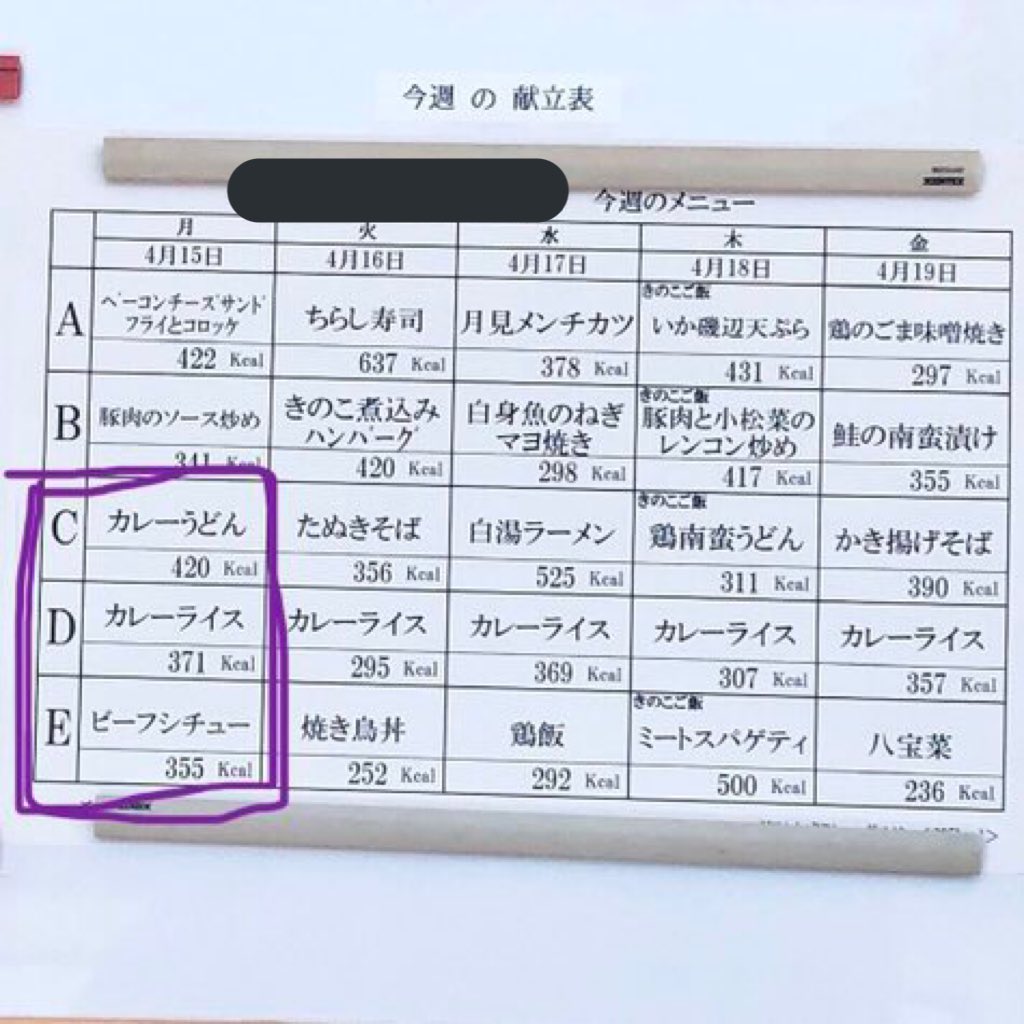 今週 の 献立表
今週のメニュー
月 火 水 木 金
4月15日 4月16日 4月17日 4月18日 4月19日
A
ベーコンチーズサンド
フライとコロッケ
422 Kcal
ちらし寿司
637 Kcal
月見メンチカツ
378 Kcal
きのこご飯
いか磯辺天ぷら
431 Kcal
鶏のごま味噌焼き
297 Kcal
B
豚肉のソース炒め
341 Kcal
きのこ煮込み
ハンバーグ
420 Kcal
白身魚のねぎ
マヨ焼き
298 Kcal
きのこご飯
豚肉と小松菜の
レンコン炒め
417 Kcal
鮭の南蛮漬け
355 Kcal
C
カレーうどん
420 Kcal
たぬきそば
356 Kcal
白湯ラーメン
525 Kcal
きのこご飯
鶏南蛮うどん
311 Kcal
かき揚げそば
390 Kcal
D
カレーライス
371 Kcal
カレーライス
295 Kcal
カレーライス
369 Kcal
カレーライス
307 Kcal
カレーライス
357 Kcal
E
ビーフシチュー
355 Kcal
焼き鳥丼
252 Kcal
鶏飯
292 Kcal
きのこご飯
ミートスパゲティ
500 Kcal
八宝菜
236 Kcal